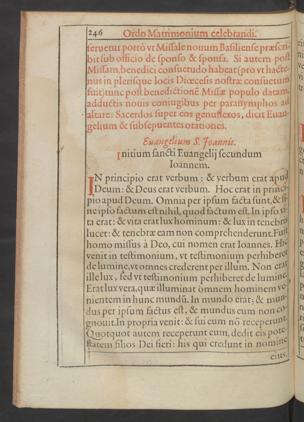 246 Ordo Matrimonium celebrandi.
seruetur portò vt Missale nouum Basiliense præscri-
bit sub officio de sponso & sponsa. Si autem post
Missam, benedici consuetudo habeat (pro vt hacte-
nus in plerisque locis Diœcesis nostræ consuetum
fuit) tunc post benedictionē Missæ populo datam,
adductis nouis coniugibus per paranymphos ad
altare: Sacerdos super eos genuflexos, dicit Euan-
gelium & subsequentes orationes.
Euangelium S. Ioannis.
Initium sancti Euangelij secundum
Ioannem.
IN principio erat verbum: & verbum erat apud
Deum: & Deus erat verbum. Hoc erat in princi-
pio apud Deum. Omnia per ipsum facta sunt, & si-
ne ipso factum est nihil, quod factum est. In ipso vi-
ta erat: & vita erat lux hominum: & lux in tenebris
lucet: & tenebræ eam non comprehenderunt. Fuit
homo missus à Deo, cui nomen erat Ioannes. Hic
venit in testimonium, vt testimonium perhiberet
de lumine, vt omnes crederent per illum. Non erat
ille lux, sed vt testimonium perhiberet de lumine.
Erat lux vera, quæ illuminat omnem hominem ve-
nientem in hunc mundū. In mundo erat: & mun-
dus per ipsum factus est, & mundus eum non co-
gnouit. In propria venit: & sui eum nō receperunt.
Quotquot autem receperunt eum, dedit eis pote-
statem filios Dei fieri: his qui credunt in nomine
eius,